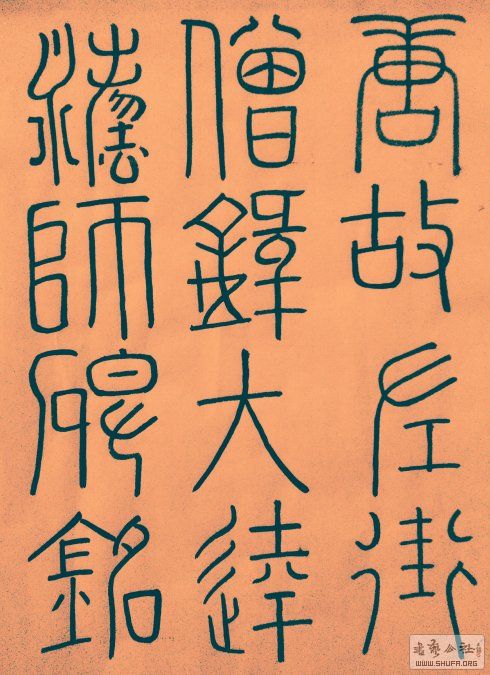 唐故左街
僧錄大達
灋師碑銘
書藝公社
WWW.SHUFA.ORG